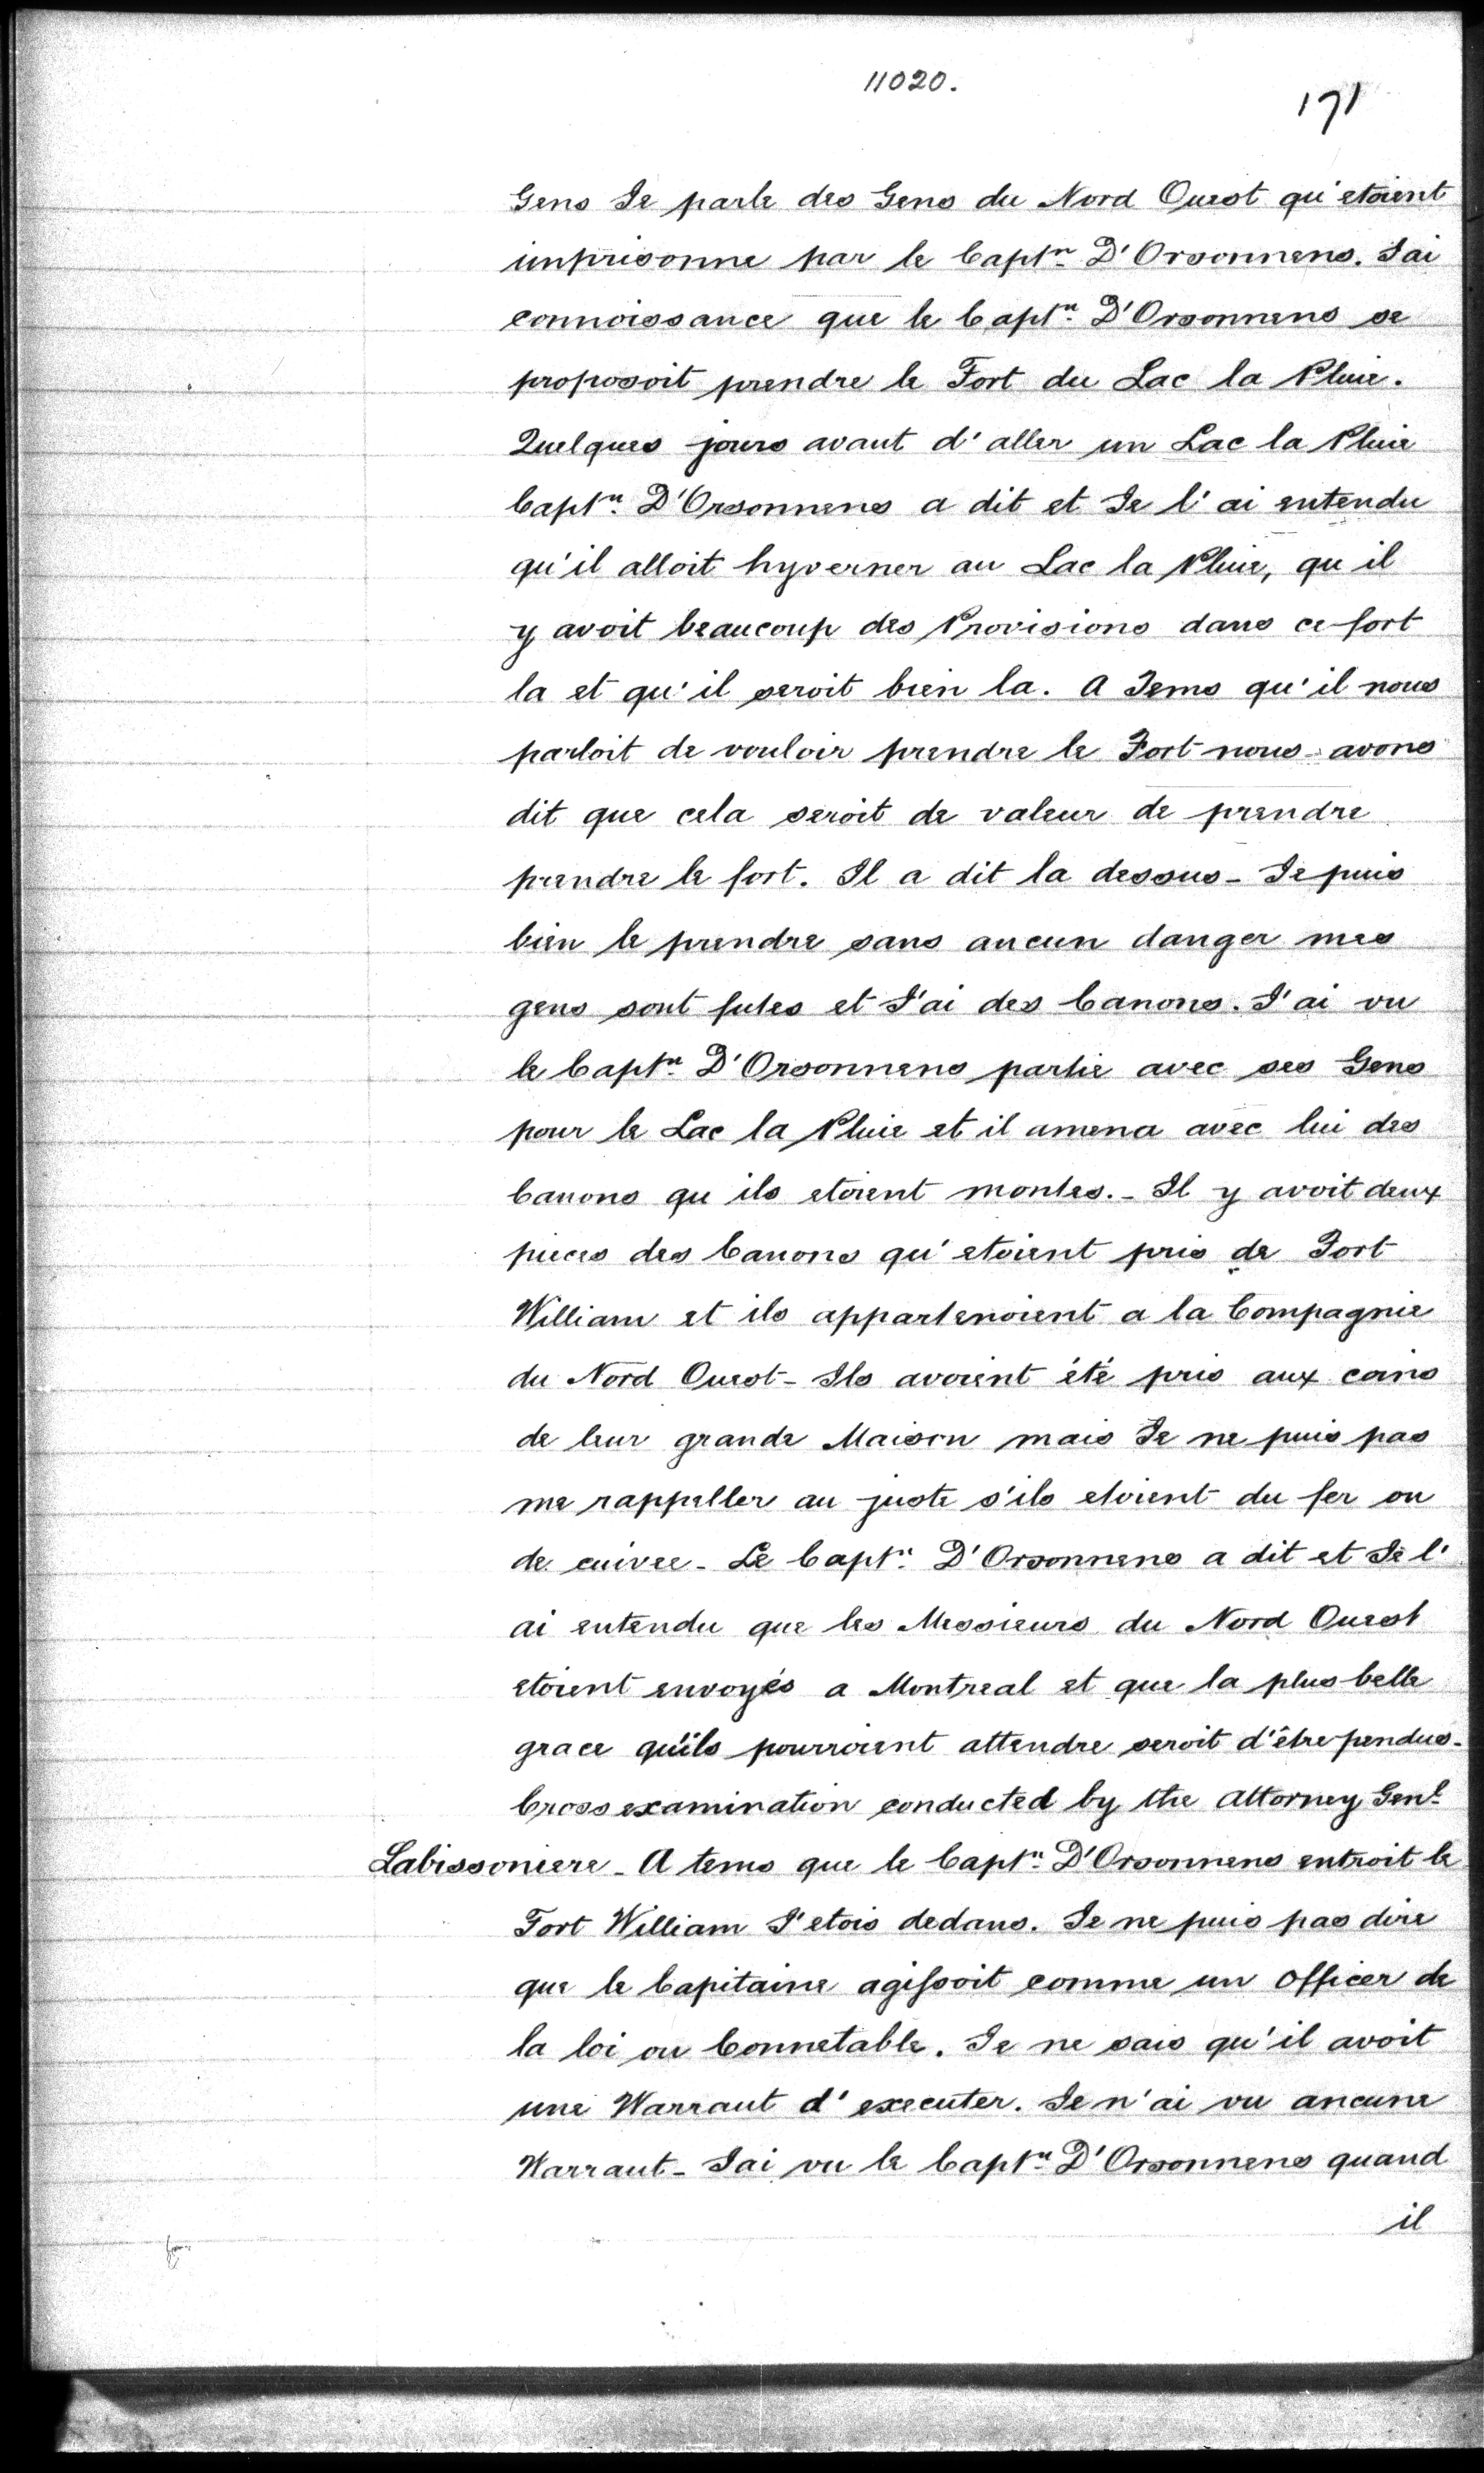 11020.
171
Gens Je parle des Gens du Nord Ouest qu'etoient
imprisonne par le Captn. D'Orsonnens. J'ai
connoissance que le Captn. D'Orsonnens se
proposoit prendre le Fort du Lac la Pluie.
Quelques jours avant d'aller un Lac la Pluie
Captn. D'Orsonnens a dit et Je l'ai entendu
qu'il alloit hyverner au Lac la Pluie, qu il
y avoit beaucoup des Provisions dans ce fort
la et qu'il seroit bien la. A Tems qu'il nous
parloit de vouloir prendre le Fort nous avons
dit que cela seroit de valeur de prendre
prendre le fort. Il a dit la dessus - Je puis
bien le prendre sans aucun danger mes
gens sont futes et J'ai des Canons. J'ai vu
le Captn. D'Orsonnens partie avec ses Gens
pour le Lac la Pluie et il amena avec lui des
Canons qu ils etoient montes. - Il y avoit deux
pieces des Canons qu'etoient pris de Fort
William et ils appartenoient a la Compagnie
du Nord Ouest - Ils avoient été pris aux coins
de leur grande Maison mais Je ne puis pas
me rappeller au juste s'ils etoient du fer ou
de cuivre - Le Captn. D'Orsonnens a dit et Je l'
ai entendu que les Messieurs du Nord Ouest
etoient envoyés a Montreal et que la plus belle
grace qu'ils pourroient attendre seroit d'être pendus -
Cross examination conducted by the Attorney Genl.
Labissoniere - A tems que le Captn. D'Orsonnens entroit le
Fort William J'etois dedans. Je ne puis pas dire
que le Capitaine agissoit comme un Officer de
la loi ou Connetable. Je ne sais qu'il avoit
une Warraut d'executer. Je n'ai vu aucune
Warraut - J'ai vu le Captn. D'Orsonnens quand
il